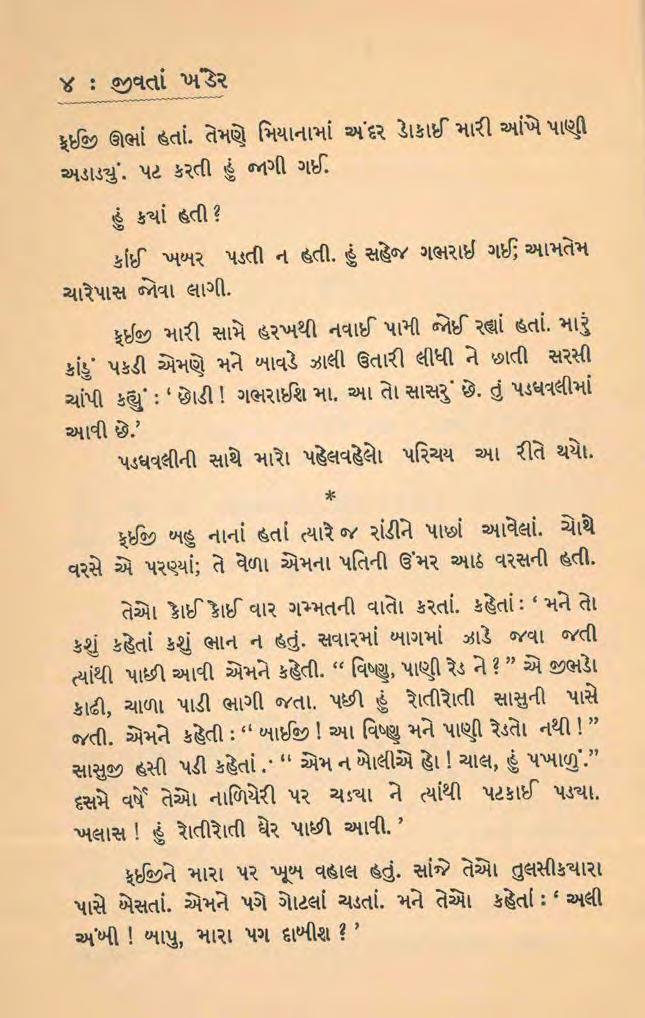 ૪ : જીવતાં ખંડેર
ફઈજી ઊભાં હતાં. તેમણે મિયાનામાં અંદર ડોકાઈ મારી આંખે પાણી
અડાડ્યું. પટ કરતી હું જાગી ગઈ.
હું કયાં હતી ?
કાંઈ ખબર પડતી ન હતી. હું સહેજ ગભરાઈ ગઈ; આમતેમ
ચારેપાસ જોવા લાગી.
ફઈજી મારી સામે હરખથી નવાઈ પામી જોઈ રહ્યાં હતાં. મારું
કાંડું પકડી એમણે મને બાવડે ઝાલી ઉતારી લીધી ને છાતી સરસી
ચાંપી કહ્યું : ‘ છોડી ! ગભરાઈશ મા. આ તો સાસરું છે. તું પડધવલીમાં
આવી છે.’
પડધવલીની સાથે મારો પહેલવહેલો પરિચય આ રીતે થયો.
*
ફઈજી બહુ નાનાં હતાં ત્યારે જ રાંડીને પાછાં આવેલાં. ચોથે
વરસે એ પરણ્યાં; તે વેળા એમના પતિની ઉંમર આઠ વરસની હતી.
તેઓ કોઈ કોઈ વાર ગમ્મતની વાતો કરતાં. કહેતાં : ‘ મને તો
કશું કહેતાં કશું ભાન ન હતું. સવારમાં બાગમાં ઝાડે જવા જતી
ત્યાંથી પાછી આવી એમને કહેતી. “ વિષ્ણુ, પાણી રેડ ને ? ” એ જીભડો
કાઢી, ચાળા પાડી ભાગી જતા. પછી હું રોતીરોતી સાસુની પાસે
જતી. એમને કહેતી : “ બાઈજી ! આ વિષ્ણુ મને પાણી રેડતો નથી ! ”
સાસુજી હસી પડી કહેતાં . “ એમ ન બોલીએ હો ! ચાલ, હું પખાળું.”
દસમે વર્ષે તેઓ નાળિયેરી પર ચડયા ને ત્યાંથી પટકાઈ પડયા.
ખલાસ ! હું રોતીરોતી ઘેર પાછી આવી. ’
ફઈજીને મારા પર ખૂબ વહાલ હતું. સાંજે તેઓ તુલસીકયારા
પાસે બેસતાં. એમને પગે ગોટલાં ચડતાં. મને તેઓ કહેતાં : ‘ અલી
અંબી ! બાપુ, મારા પગ દાબીશ ? ’